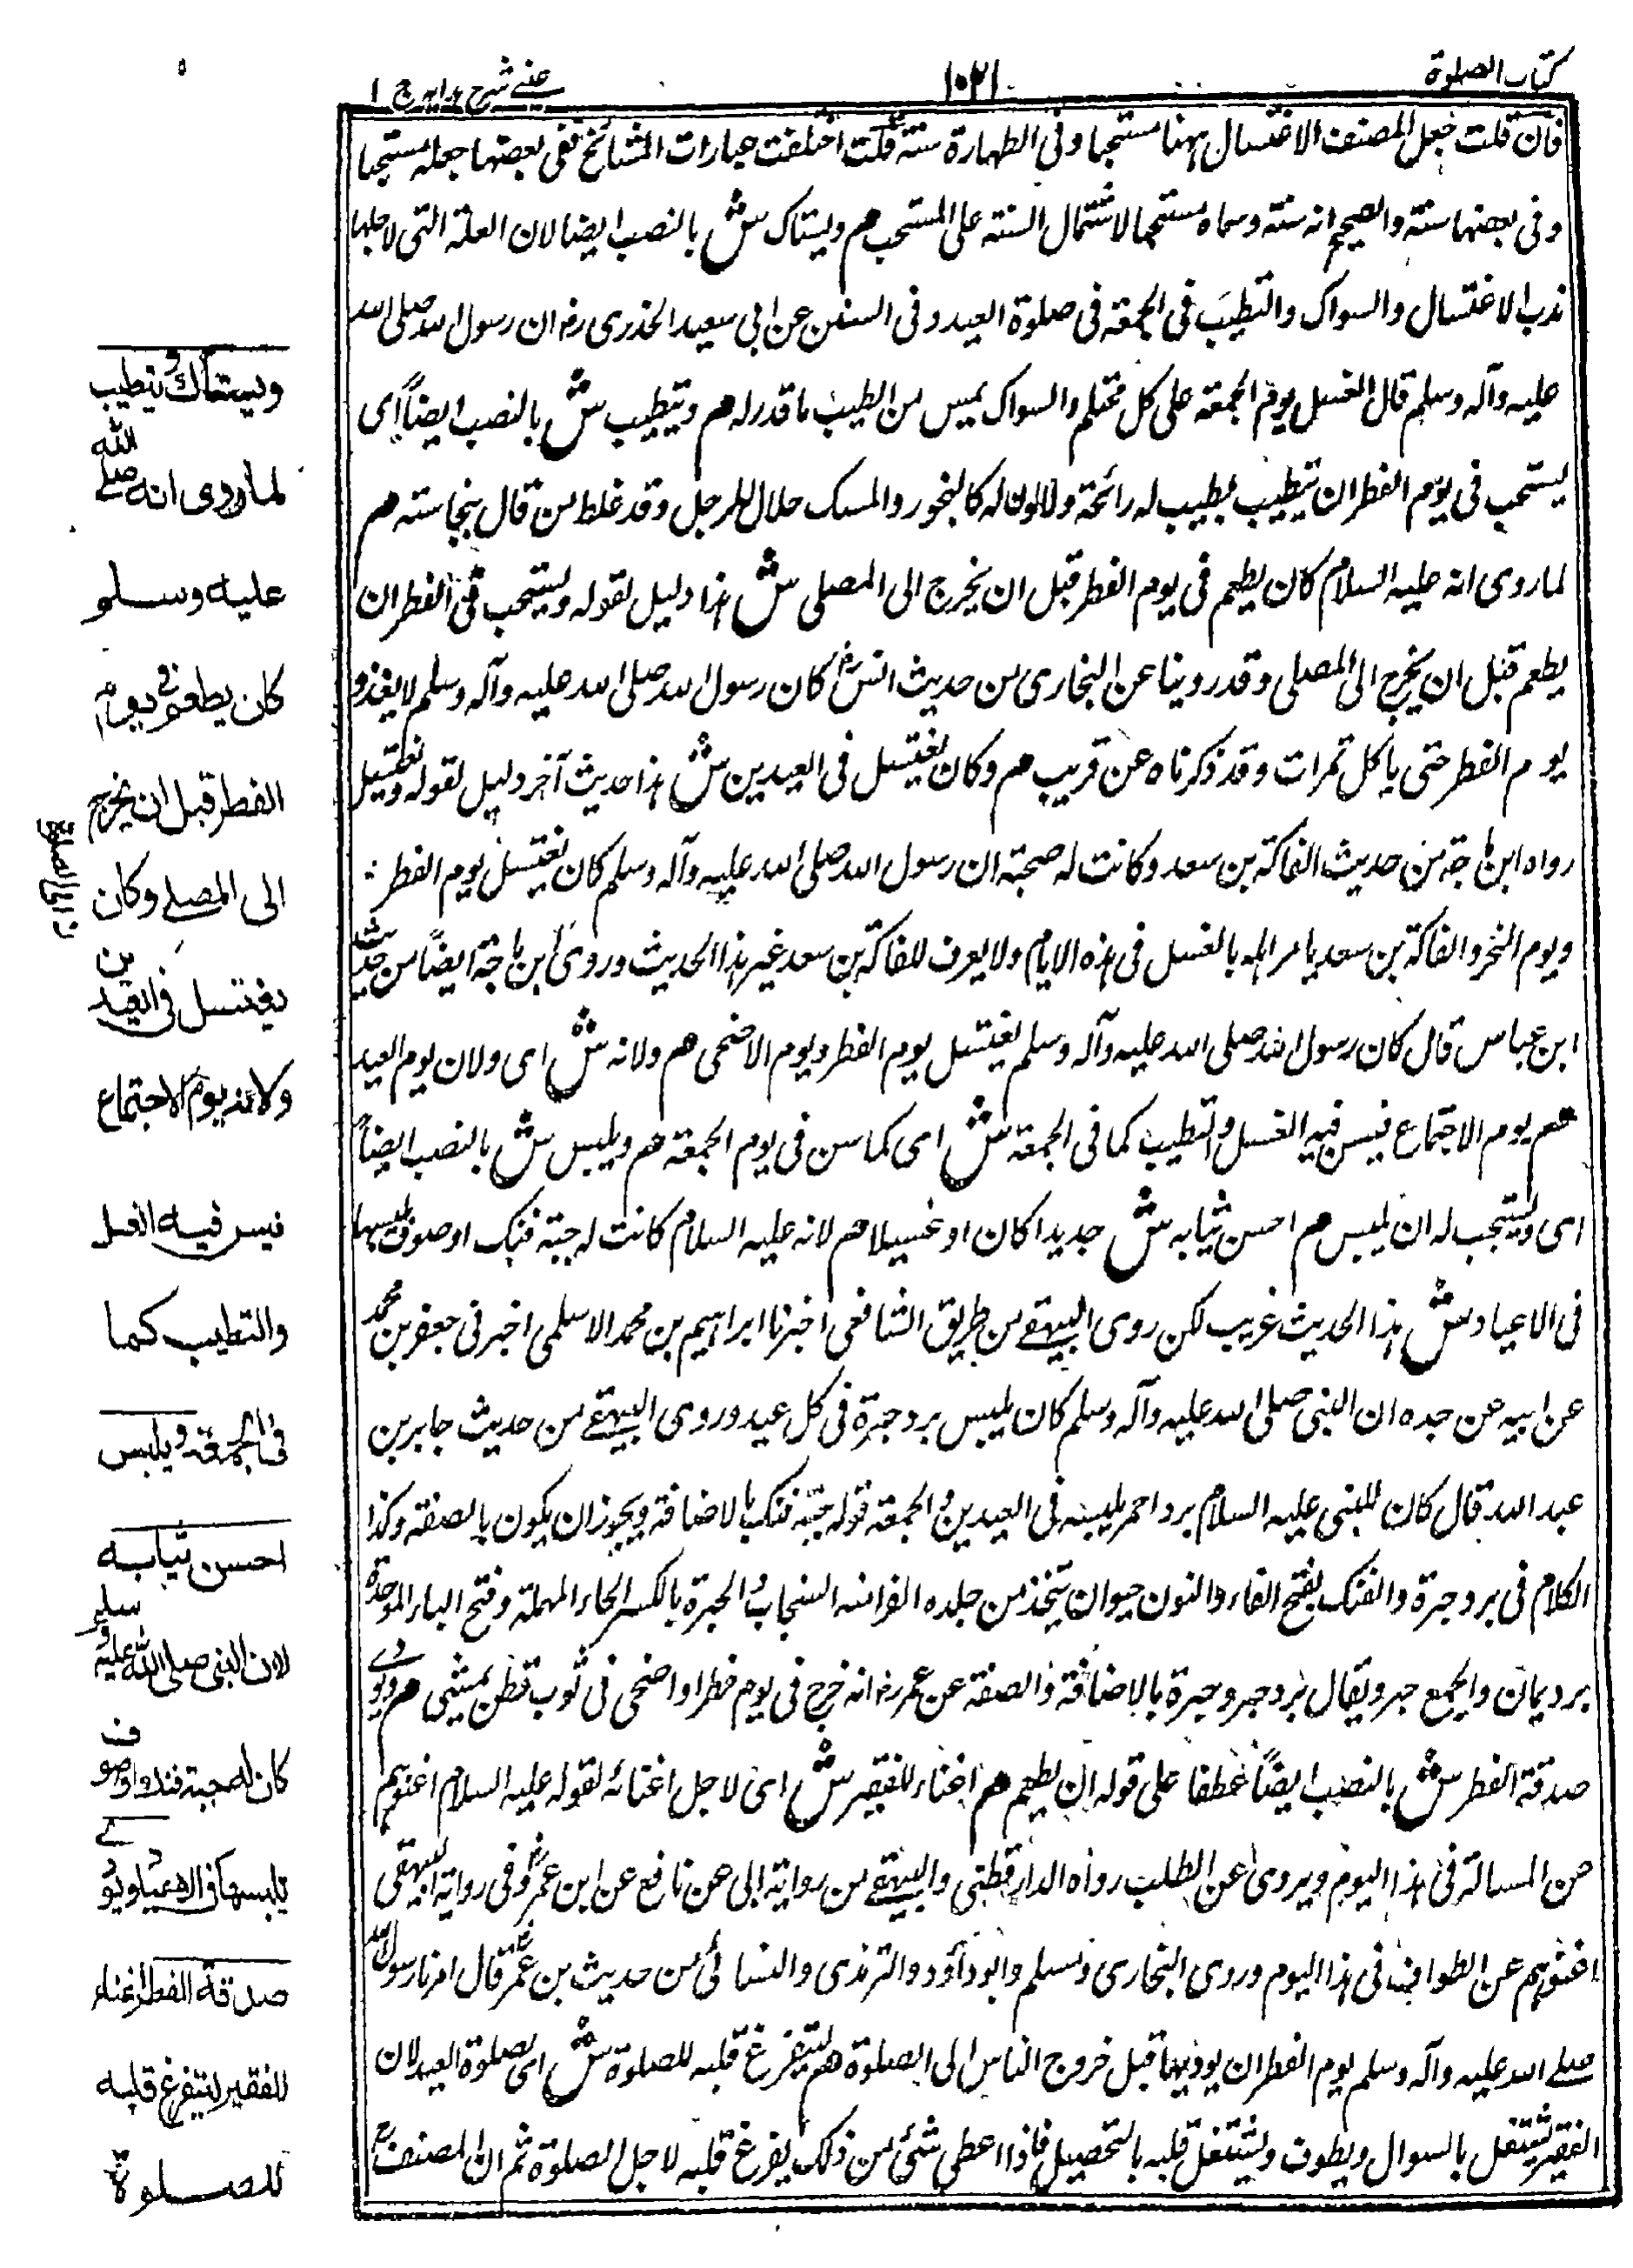 كتاب الصلوة
١٠٢١
عينى شرح هدايه ج ١
فان قلت جعل المصنف الاغتسال ههنا مستحبا وفى الطهارة سنة قلت اختلفت عبارات المشائخ ففى بعضها جعله مستحبا
وفى بعضها سنة والصحيح انه سنة وسماه مستحبا لاشتمال السنة على المستحب هم ويستاك ش بالنصب ايضا لان العلة التى لاجلها
ندب الاغتسال والسواك والتطيب فى الجمعة فى صلوة العيد وفى السنن عن ابى سعيد الخدرى رض ان رسول الله صلى الله
عليه وآله وسلم قال الغسل يوم الجمعة على كل محتلم والسواك يمس من الطيب ما قدر له هم ويتطيب ش بالنصب ايضاً اى
يستحب فى يوم الفطر ان يتطيب بطيب له رائحة ولا لون له كالبخور والمسك حلال للرجل وقد غلط من قال بنجاسته هم
لما روى انه عليه السلام كان يطعم فى يوم الفطر قبل ان يخرج الى المصلى ش هذا دليل لقوله ويستحب فى الفطر ان
يطعم قبل ان يخرج الى المصلى وقد روينا عن البخارى من حديث انس رض كان رسول الله صلى الله عليه وآله وسلم لا يغدو
يوم الفطر حتى ياكل تمرات وقد ذكرناه عن قريب هم وكان يغتسل فى العيدين ش هذا حديث آخر دليل لقوله ويغتسل
رواه ابن ماجة من حديث الفاكة بن سعد وكانت له صحبة ان رسول الله صلى الله عليه وآله وسلم كان يغتسل يوم الفطر
ويوم النحر والفاكة بن سعد يامر اهله بالغسل فى هذه الايام ولا يعرف للفاكة بن سعد غير هذا الحديث وروى ابن ماجة ايضاً من حديث
ابن عباس قال كان رسول الله صلى الله عليه وآله وسلم يغتسل يوم الفطر ويوم الاضحى هم ولانه ش اى ولان يوم العيد
هم يوم الاجتماع فيسن فيه الغسل والتطيب كما فى الجمعة ش اى كما سن فى يوم الجمعة هم ويلبس ش بالنصب ايضاً
اى ويستحب له ان يلبس هم احسن ثيابه ش جديدا كان او غسيلا هم لانه عليه السلام كانت له جبة فنك او صوف يلبسها
فى الاعياد ش هذا الحديث غريب لكن روى البيهقے من طريق الشافعى اخبرنا ابراهيم بن محمد الاسلمى اخبرنى جعفر بن محمد
عن ابيه عن جده ان النبى صلى الله عليه وآله وسلم كان يلبس برد حبرة فى كل عيد وروى البيهقے من حديث جابر بن
عبد الله قال كان للنبى عليه السلام برد احمر يلبسه فى العيدين والجمعة قوله جبة فنك بالاضافة ويجوز ان يكون بالصفة وكذا
الكلام فى برد حبرة والفنك بفتح الفاء والنون حيوان يتخذ من جلده الفراء السنجاب والحبرة بالكسر الحاء المهملة وفتح الباء الموحدة
برد يمان والجمع حبر ويقال برد حبر وحبرة بالاضافة والصفة عن عمر رض انه خرج فى يوم فطر او اضحى فى ثوب قطن يمشى هم ويودے
صدقة الفطر ش بالنصب ايضاً عطفا على قوله ان يطعم هم اغناء للفقير ش اى لاجل اغنائه لقوله عليه السلام اغنوهم
عن المسالة فى هذا اليوم ويروى عن الطلب رواه الدارقطنى والبيهقے من رواية ابى عن نافع عن ابن عمر رض وفى رواية البيهقى
اغنوهم عن الطواف فى هذا اليوم وروى البخارى ومسلم وابو داؤد والترمذى والنسائى من حديث بن عمر رض قال امرنا رسول الله
صلے الله عليه وآله وسلم يوم الفطر ان يوديها قبل خروج الناس الى الصلوة هم ليتفرغ قلبه للصلوة ش اى لصلوة العيد لان
الفقير يشتغل بالسوال ويطوف ويشتغل قلبه بالتحصيل فاذا اعطى شئ من ذلك يفرغ قلبه لاجل الصلوة ثم ان المصنف رح
ويستاك ويتطيب
لما روى انه صلے الله
عليه وسلم
كان يطعم فى يوم
الفطر قبل ان يخرج
الى المصلے وكان
يغتسل فى العيدين
ولانه يوم الاجتماع
فيسن فيه الغسل
والتطيب كما
فى الجمعة ويلبس
احسن ثيابه
لان النبى صلى الله عليه وسلم
كان له جبة فنك او صوف
يلبسها فى الاعياد ويودے
صدقة الفطر اغناء
للفقير ليتفرغ قلبه
للصلوة